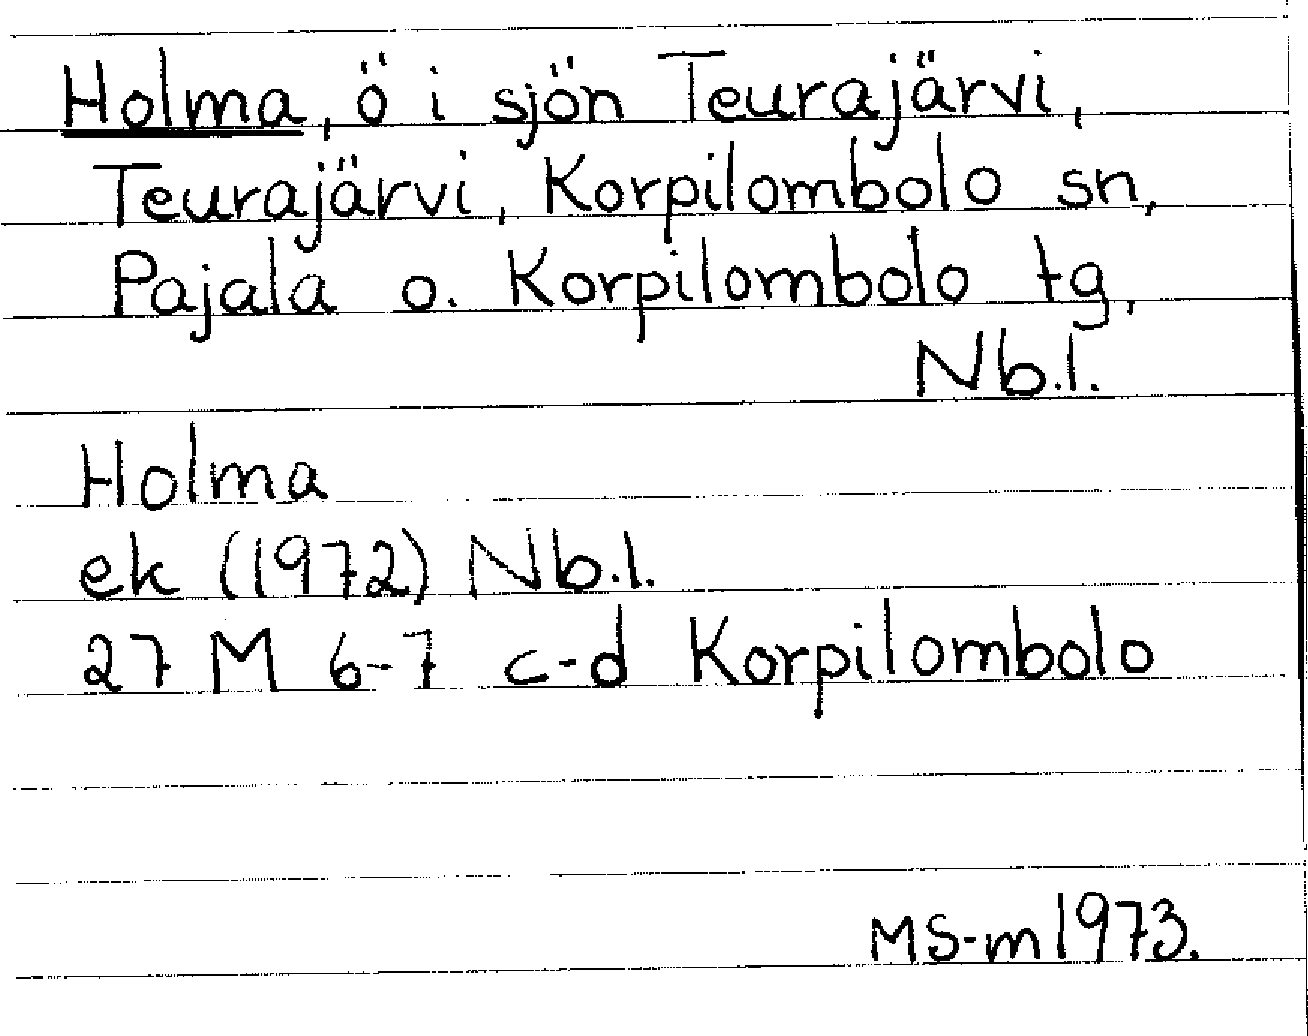 Holma, ö i sjön Teurajärvi,
Teurajärvi, Korpilombolo sn,
Pajala o. Korpilombolo tg,
Nb.l.
Holma
ek (1972) Nb.l.
27 M 6-7 c-d Korpilombolo
MS-m 1973.